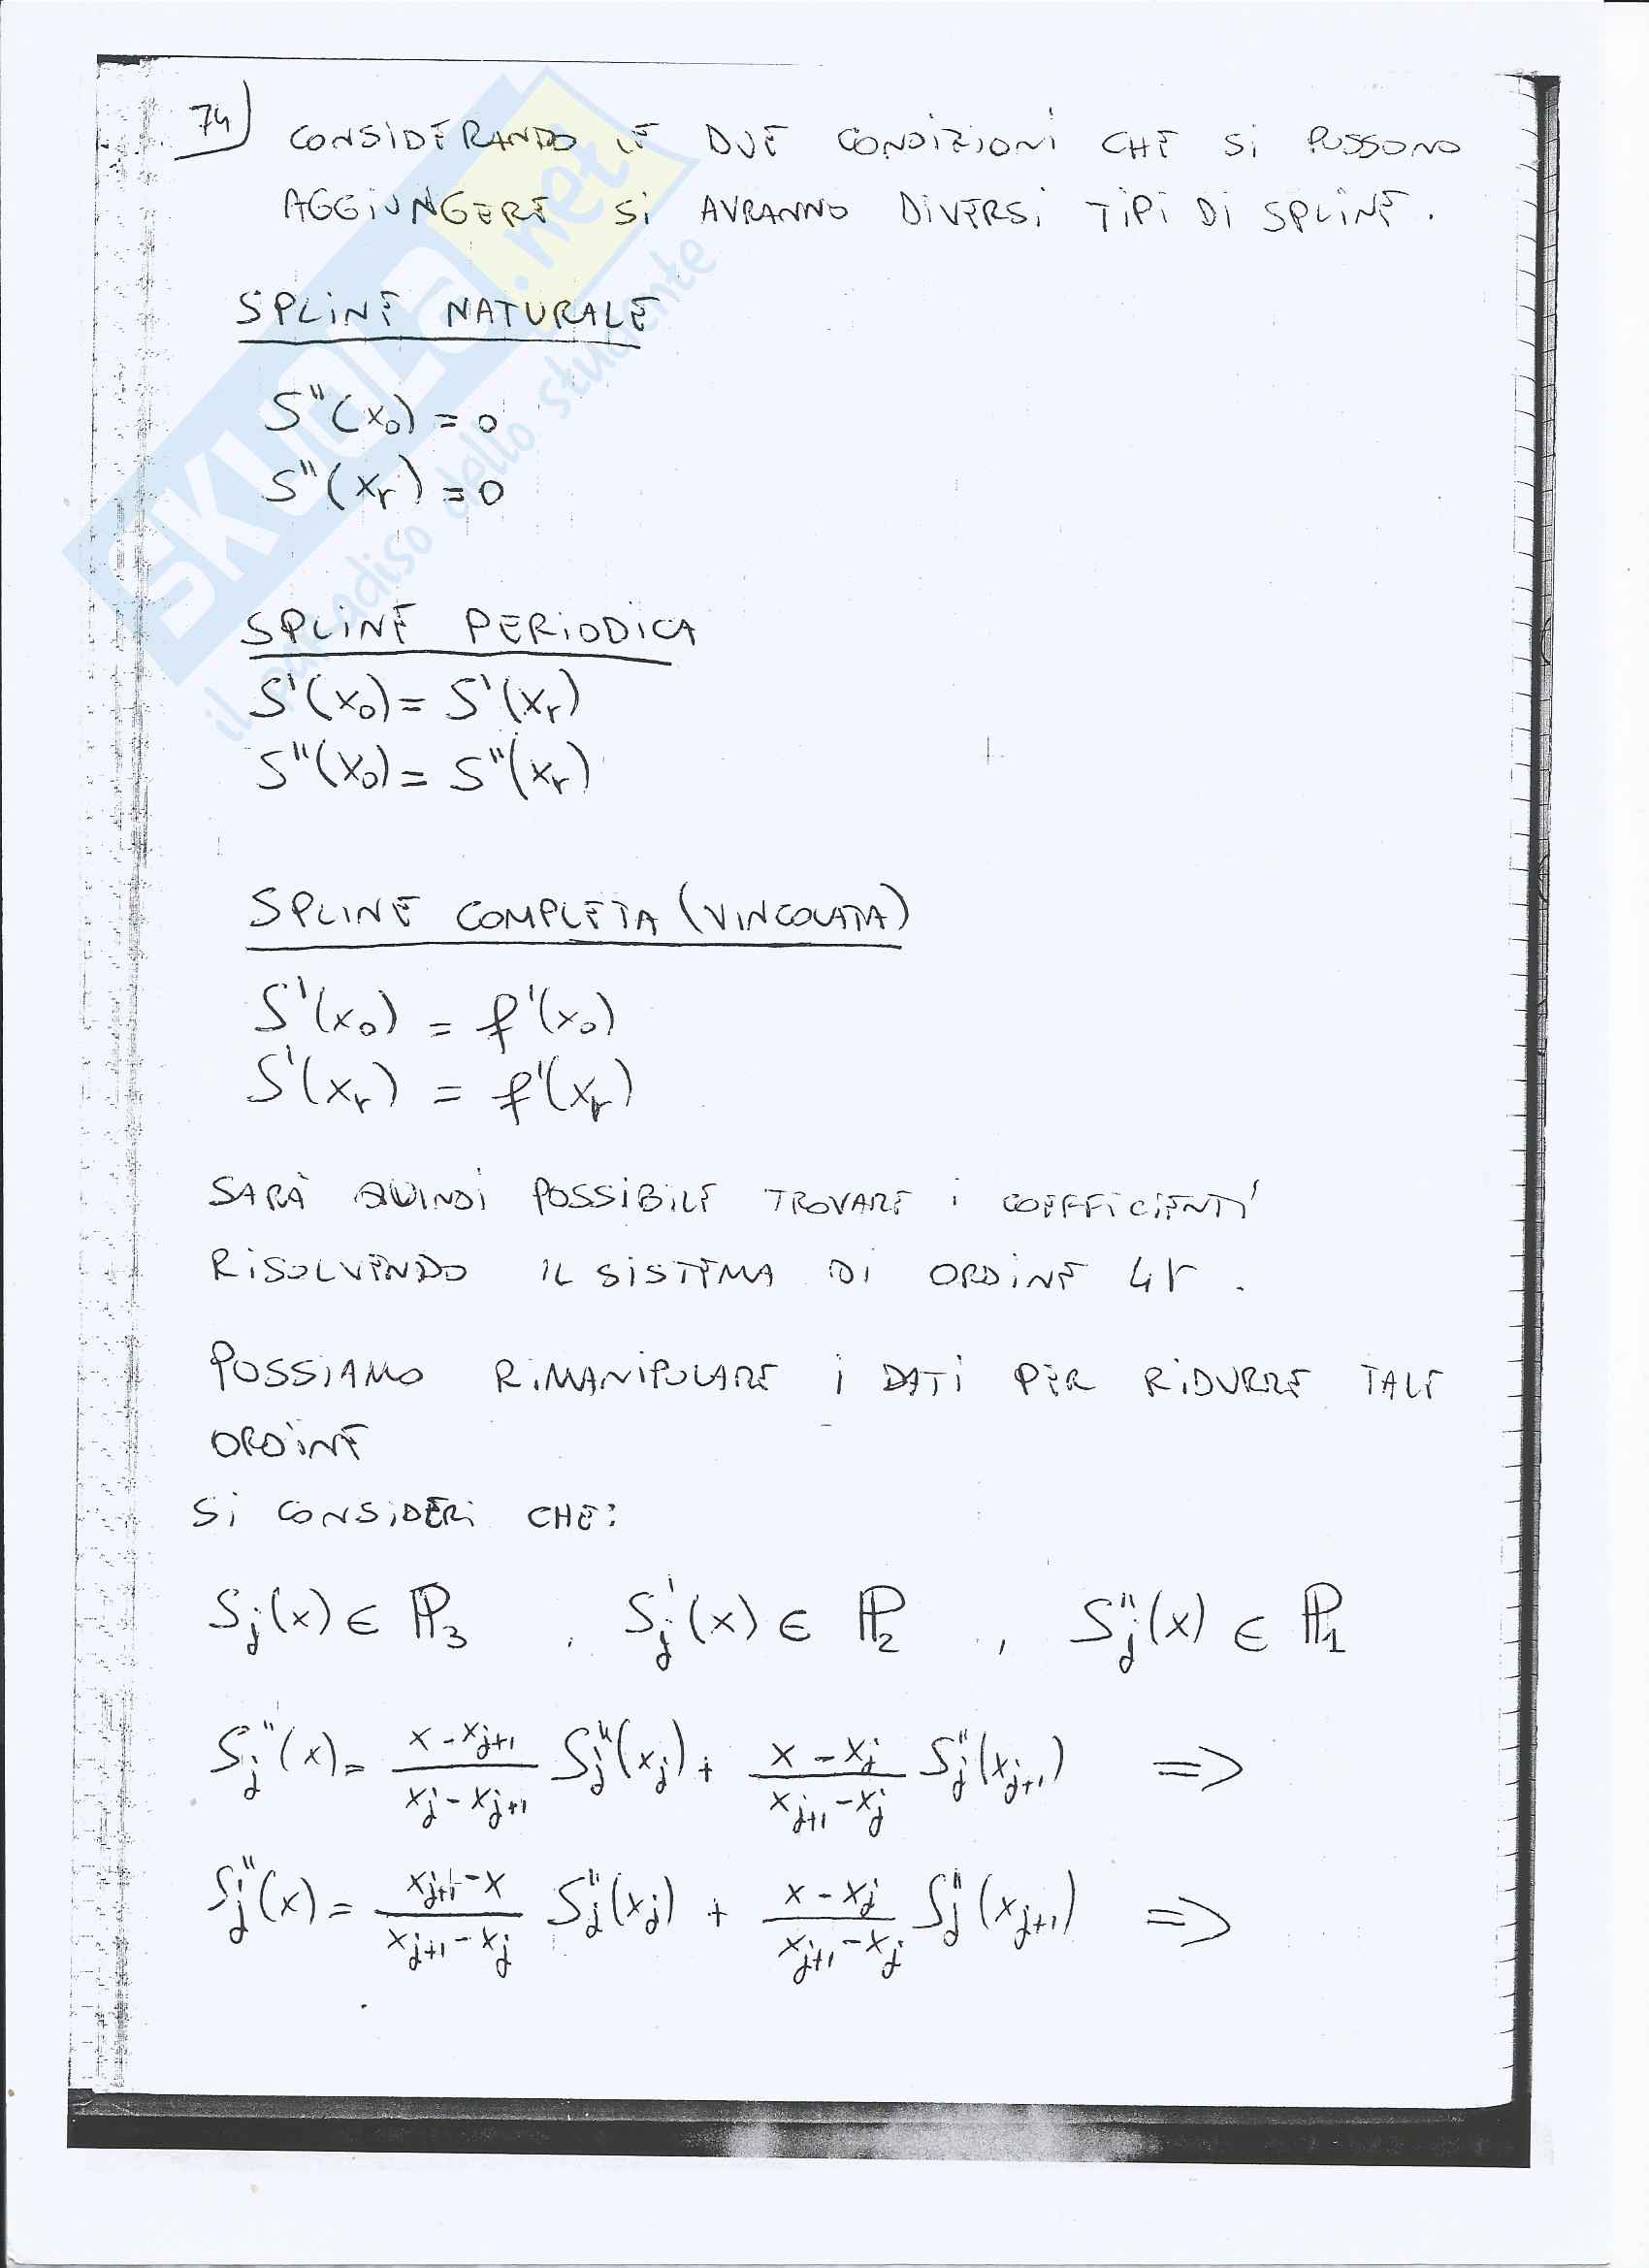 74)
CONSIDERANDO LE DUE CONDIZIONI CHE SI POSSONO
AGGIUNGERE SI AVRANNO DIVERSI TIPI DI SPLINE.
SPLINE NATURALE
S''(x₀) = 0
S''(xᵣ) = 0
SPLINE PERIODICA
S'(x₀) = S'(xᵣ)
S''(x₀) = S''(xᵣ)
SPLINE COMPLETA (VINCOLATA)
S'(x₀) = f'(x₀)
S'(xᵣ) = f'(xᵣ)
SARÀ QUINDI POSSIBILE TROVARE I COEFFICIENTI
RISOLVENDO IL SISTEMA DI ORDINE 4r.
POSSIAMO RIMANIPOLARE I DATI PER RIDURRE TALE
ORDINE
SI CONSIDERI CHE:
Sⱼ(x) ∈ ℙ₃ , Sⱼ'(x) ∈ ℙ₂ , Sⱼ''(x) ∈ ℙ₁
Sⱼ''(x) = (x - xⱼ₊₁)/(xⱼ - xⱼ₊₁) Sⱼ''(xⱼ) + (x - xⱼ)/(xⱼ₊₁ - xⱼ) Sⱼ''(xⱼ₊₁) =>
Sⱼ''(x) = (xⱼ₊₁ - x)/(xⱼ₊₁ - xⱼ) Sⱼ''(xⱼ) + (x - xⱼ)/(xⱼ₊₁ - xⱼ) Sⱼ''(xⱼ₊₁) =>
SKUOLA.net
il paradiso dello studente